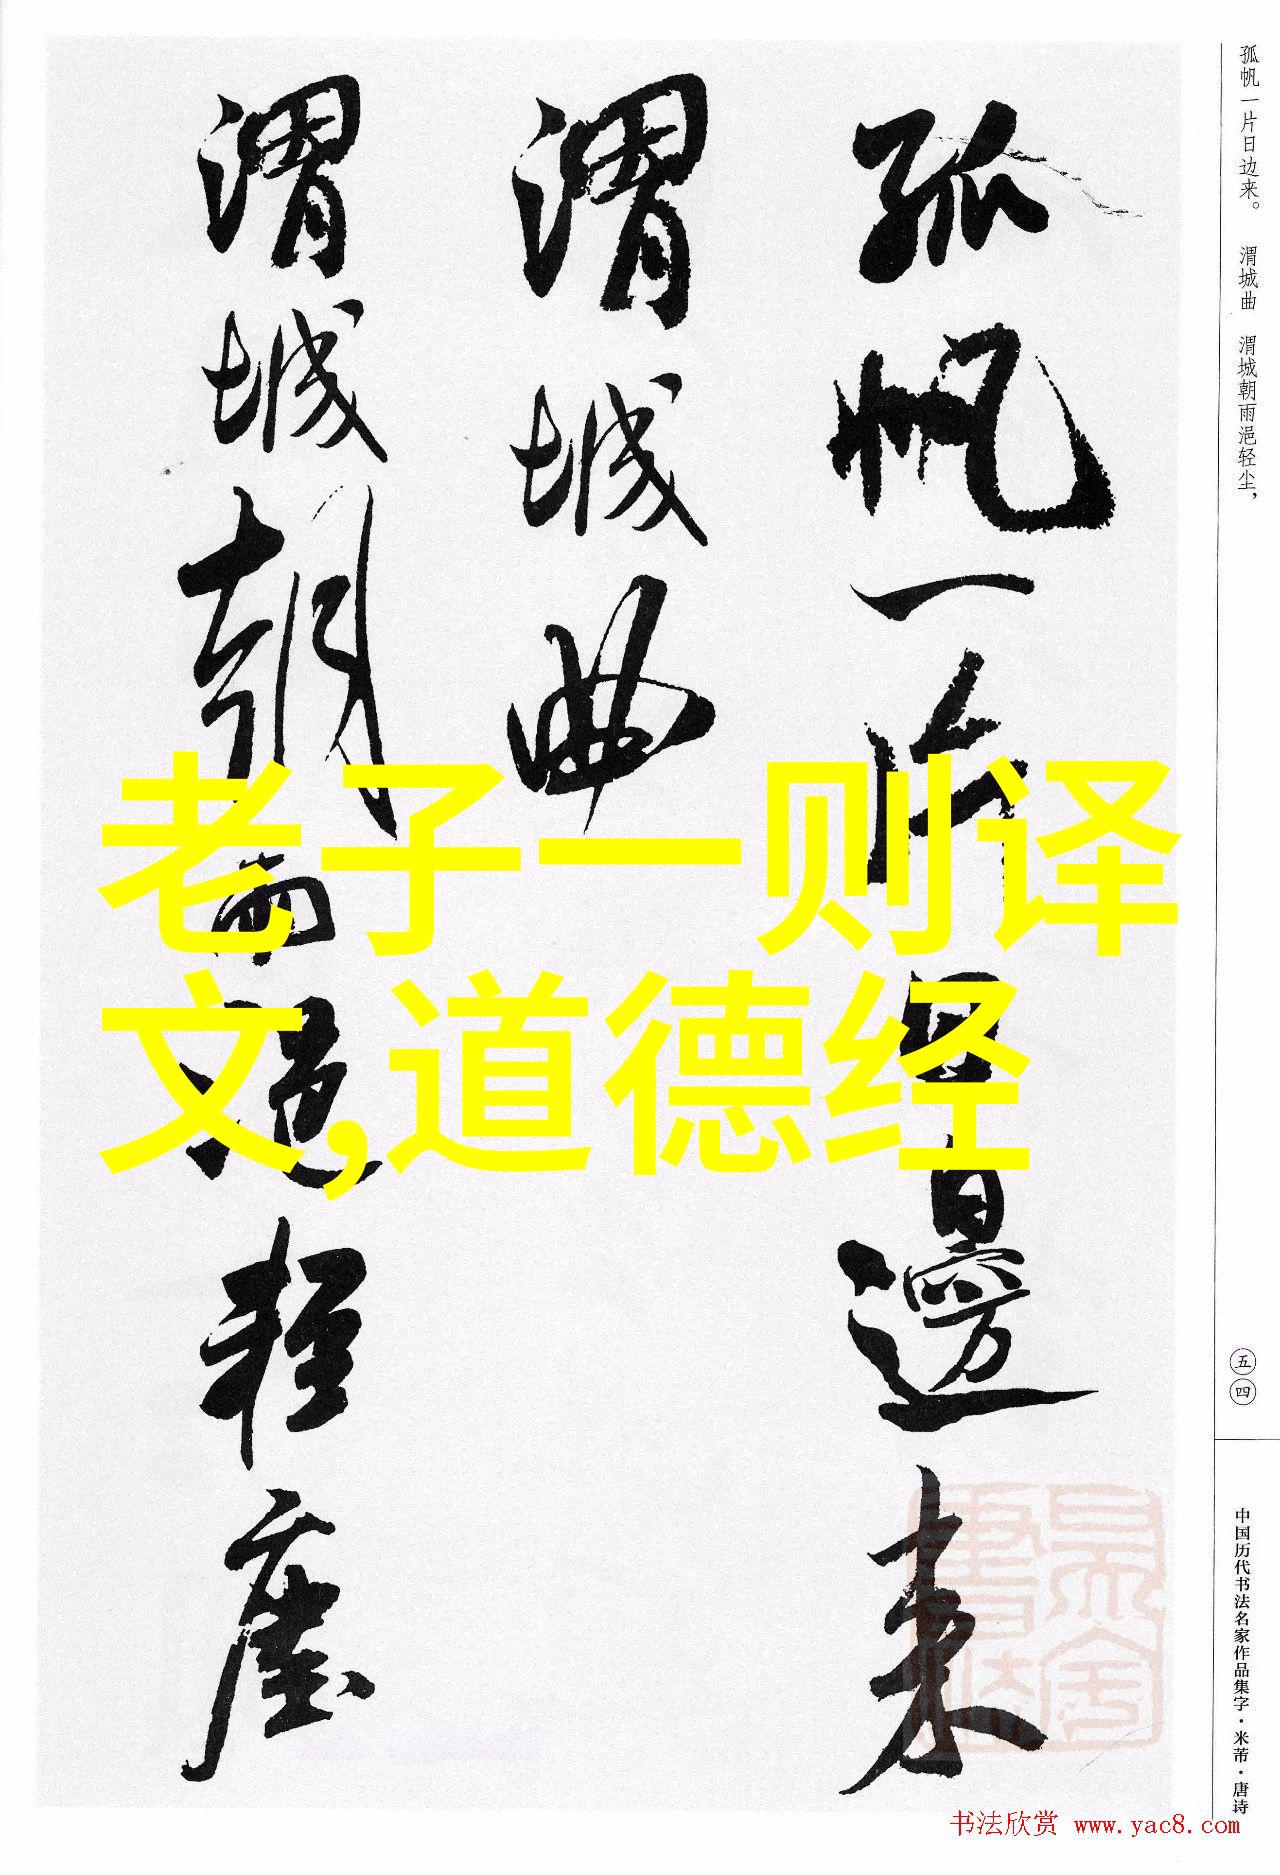 孤帆一片日边来。 渭城曲 渭城朝雨浥轻尘，
孤帆一片日邊来
渭城曲
渭城朝雨浥轻塵
老子一则译
文,道德经
五四
中国历代书法名家作品集字·米芾·唐诗
书法欣赏 www.yac8.com